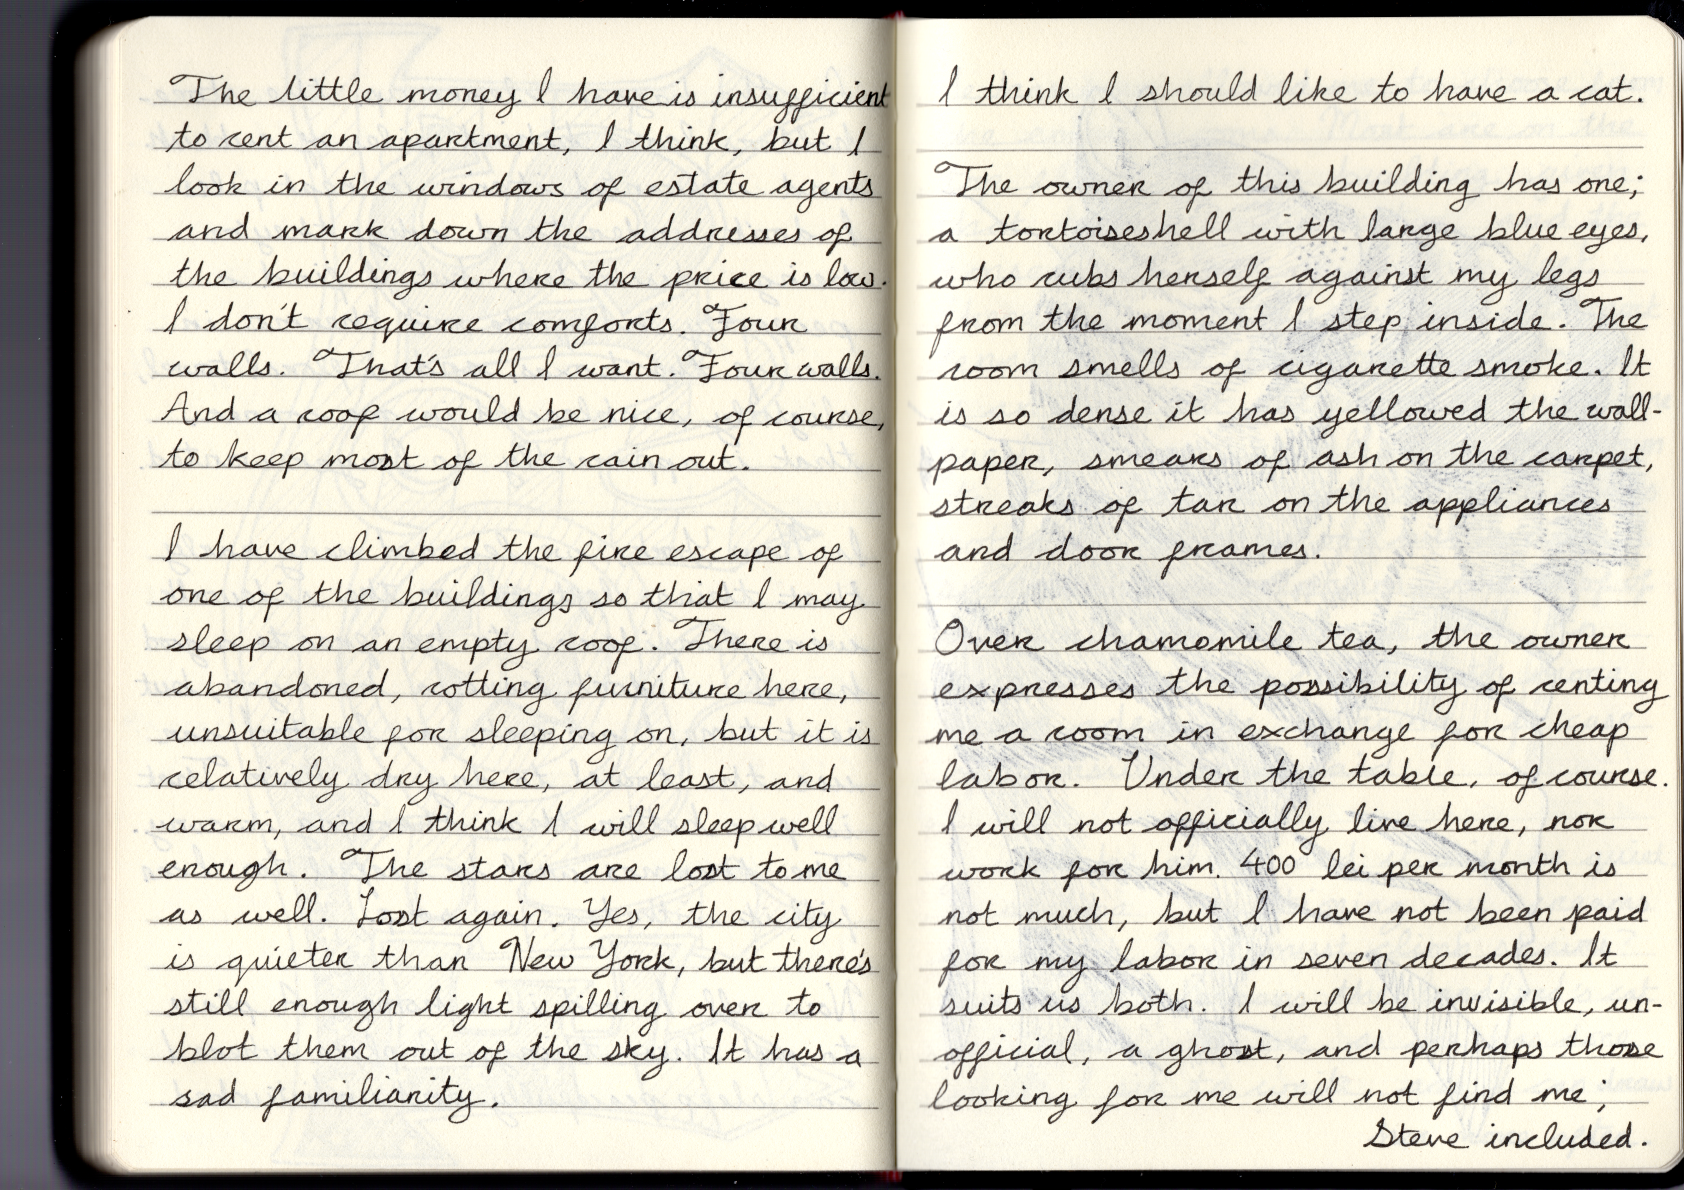 The little money I have is insufficient
to rent an apartment, I think, but I
look in the windows of estate agents
and mark down the addresses of
the buildings where the price is low.
I don't require comforts. Four
walls. That's all I want. Four walls.
And a roof would be nice, of course,
to keep most of the rain out.
I have climbed the fire escape of
one of the buildings so that I may
sleep on an empty roof. There is
abandoned, rotting furniture here,
unsuitable for sleeping on, but it is
relatively dry here, at least, and
warm, and I think I will sleep well
enough. The stars are lost to me
as well. Lost again. Yes, the city
is quieter than New York, but there's
still enough light spilling over to
blot them out of the sky. It has a
sad familiarity.
I think I should like to have a cat.
The owner of this building has one;
a tortoiseshell with large blue eyes,
who rubs herself against my legs
from the moment I step inside. The
room smells of cigarette smoke. It
is so dense it has yellowed the wall-
paper, smears of ash on the carpet,
streaks of tar on the appliances
and door frames.
Over chamomile tea, the owner
expresses the possibility of renting
me a room in exchange for cheap
labor. Under the table, of course.
I will not officially live here, nor
work for him. 400 lei per month is
not much, but I have not been paid
for my labor in seven decades. It
suits us both. I will be invisible, un-
official, a ghost, and perhaps those
looking for me will not find me;
Steve included.